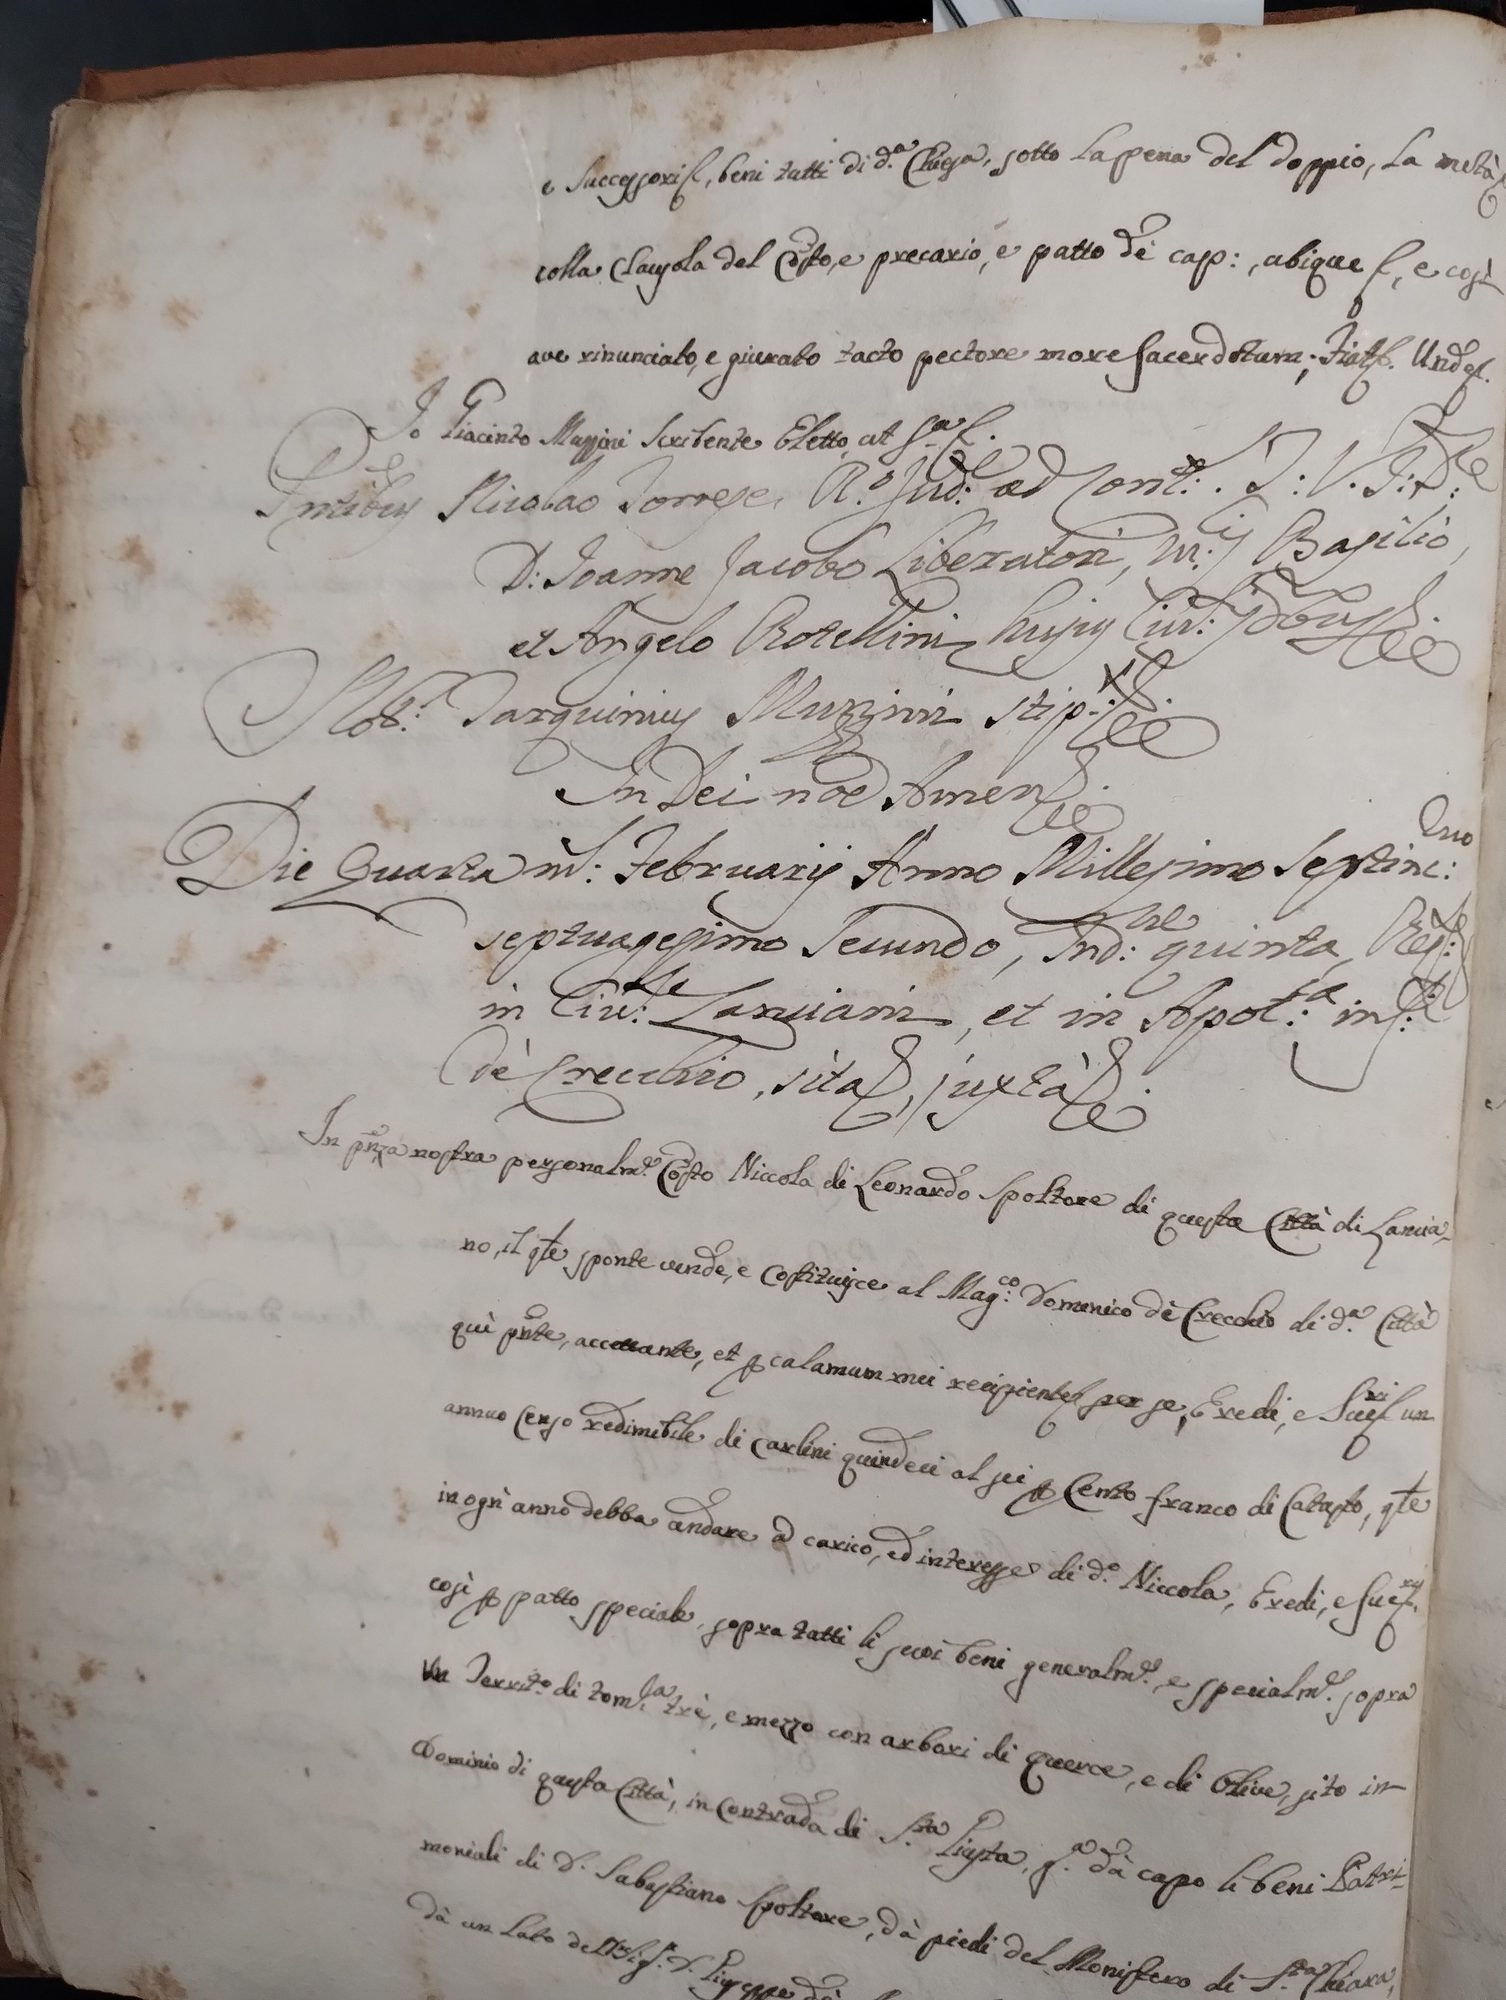 e Successori &, beni tutti di d.ª Chiesa, sotto la pena del doppio, la metà
colla Clausola del Costo, e precario, e patto dè cap:, ubique &, e così
ave rinunciato, e giurato tacto pectore more Sacerdotum; Fiat &. Unde &.
Io Giacinto Massini Scribente Eletto, ut s.ª &.
Pntibus Nicolao Torrese R.º Jud: ad Cont: . J: V. J: D:
D: Joanne Jacobo Liberatori, M: Basilio,
et Angelo Rotellini hujus Civ:
Not: Tarquinius Munini stip: &.
In Dei noe Amen &.
Die Quarta m: Februarij Anno Millesimo Septinc:mo
septuagesimo Secundo, Ind:ne quinta, Reg:
in Civ:te Lanciani, et in Apot:ca inf:
dè Crecchio, sita &, juxtà &.
In pnza nostra personalm.e Costo Niccola di Leonardo Spoltore di questa Città di Lancia-
no, il qle sponte vende, e costituisce al Mag:co Domenico dè Crecchio di d.ª Città
quì pnte, accettante, et p calamum mei recipiente & per se, Eredi, e Suc.ri & un
annuo Censo redimibile di carlini quindeci al sei p Cento franco di Catasto, qle
in ognì anno debba andare a carico, ed interesse di d.º Niccola, Eredi, e Suc.ri,
così p patto speciale, sopra tutti li suoi beni generalm.e, e specialm.e sopra
un Territ.º di tom.la trè, e mezzo con arbori di querce, e di Olive, sito in
Dominio di questa Città, in Contrada di S.ta Giusta, dà capo li beni Patri-
moniali di D. Sabastiano Spoltore, dà piedi del Monistero di S.ta Chiara,
dà un lato del Sig.r D. Giuseppe dè